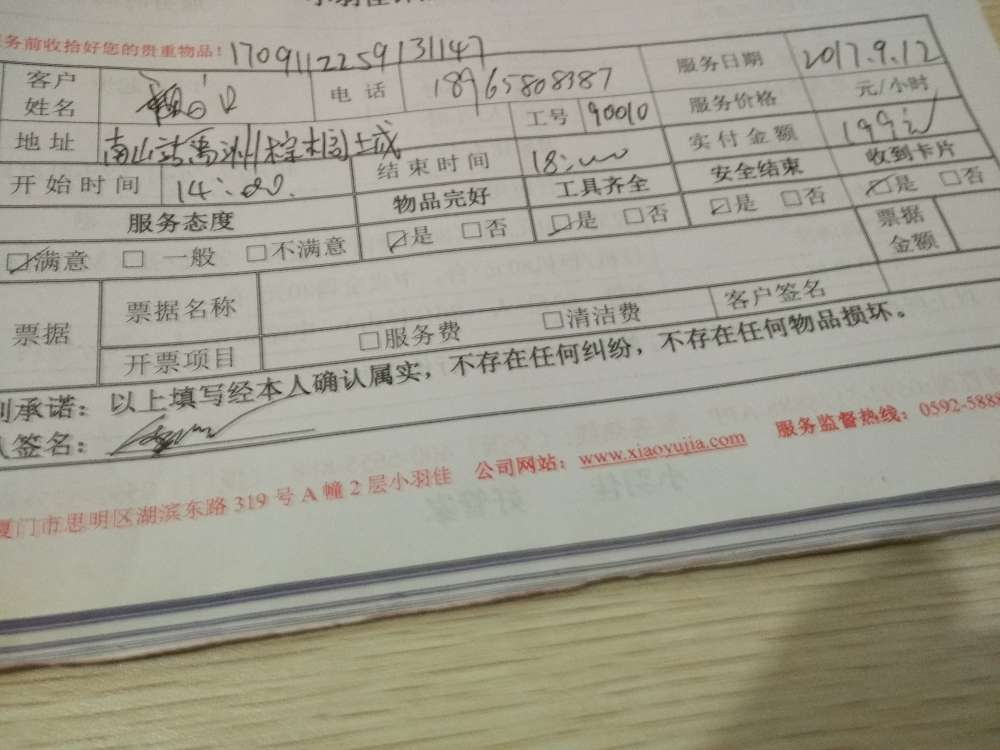 务前收拾好您的贵重物品! 1709112259131147
客户姓名 电话 18965808387 服务日期 2017.9.12
地址 南山 禹洲 棕榈城 工号 90010 服务价格 元/小时
开始时间 14:00 结束时间 18:00 实付金额 199元
服务态度 物品完好 工具齐全 安全结束 收到卡片
☑满意 □ 一般 □不满意 ☑是 □否 ☑是 □否 ☑是 □否 ☑是 □否
票据 票据名称 客户签名 票据金额
开票项目 □服务费 □清洁费
承诺：以上填写经本人确认属实，不存在任何纠纷，不存在任何物品损坏。
签名：
厦门市思明区湖滨东路 319 号 A 幢 2 层小羽佳 公司网站：www.xiaoyujia.com 服务监督热线：0592-5888